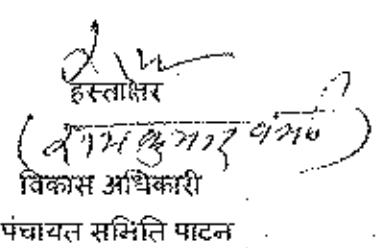 हस्ताक्षर
(रामकुमार
विकास अधिकारी
पंचायत समिति पाटन